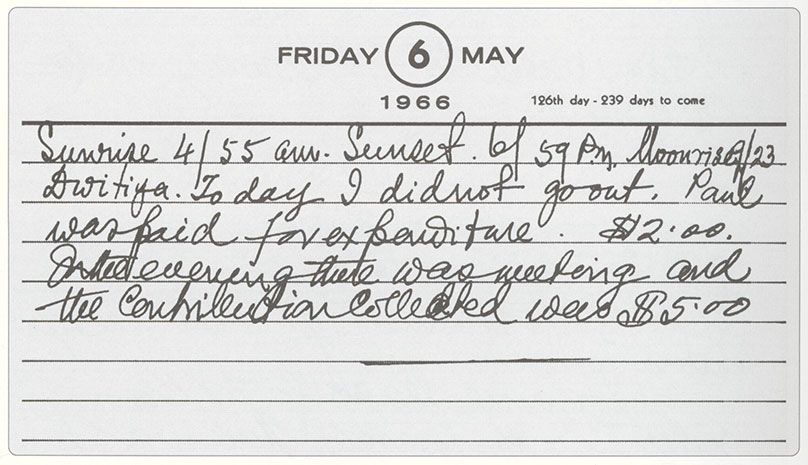 FRIDAY 6 MAY
1966 126th day - 239 days to come
Sunrise 4/55 am. Sunset. 6/59 P.M. Moonrise 9/23
Dwitiya. To day I did not go out. Paul
was paid for expenditure. $2.00.
In the evening there was meeting and
the Contribution Collected was $5.00